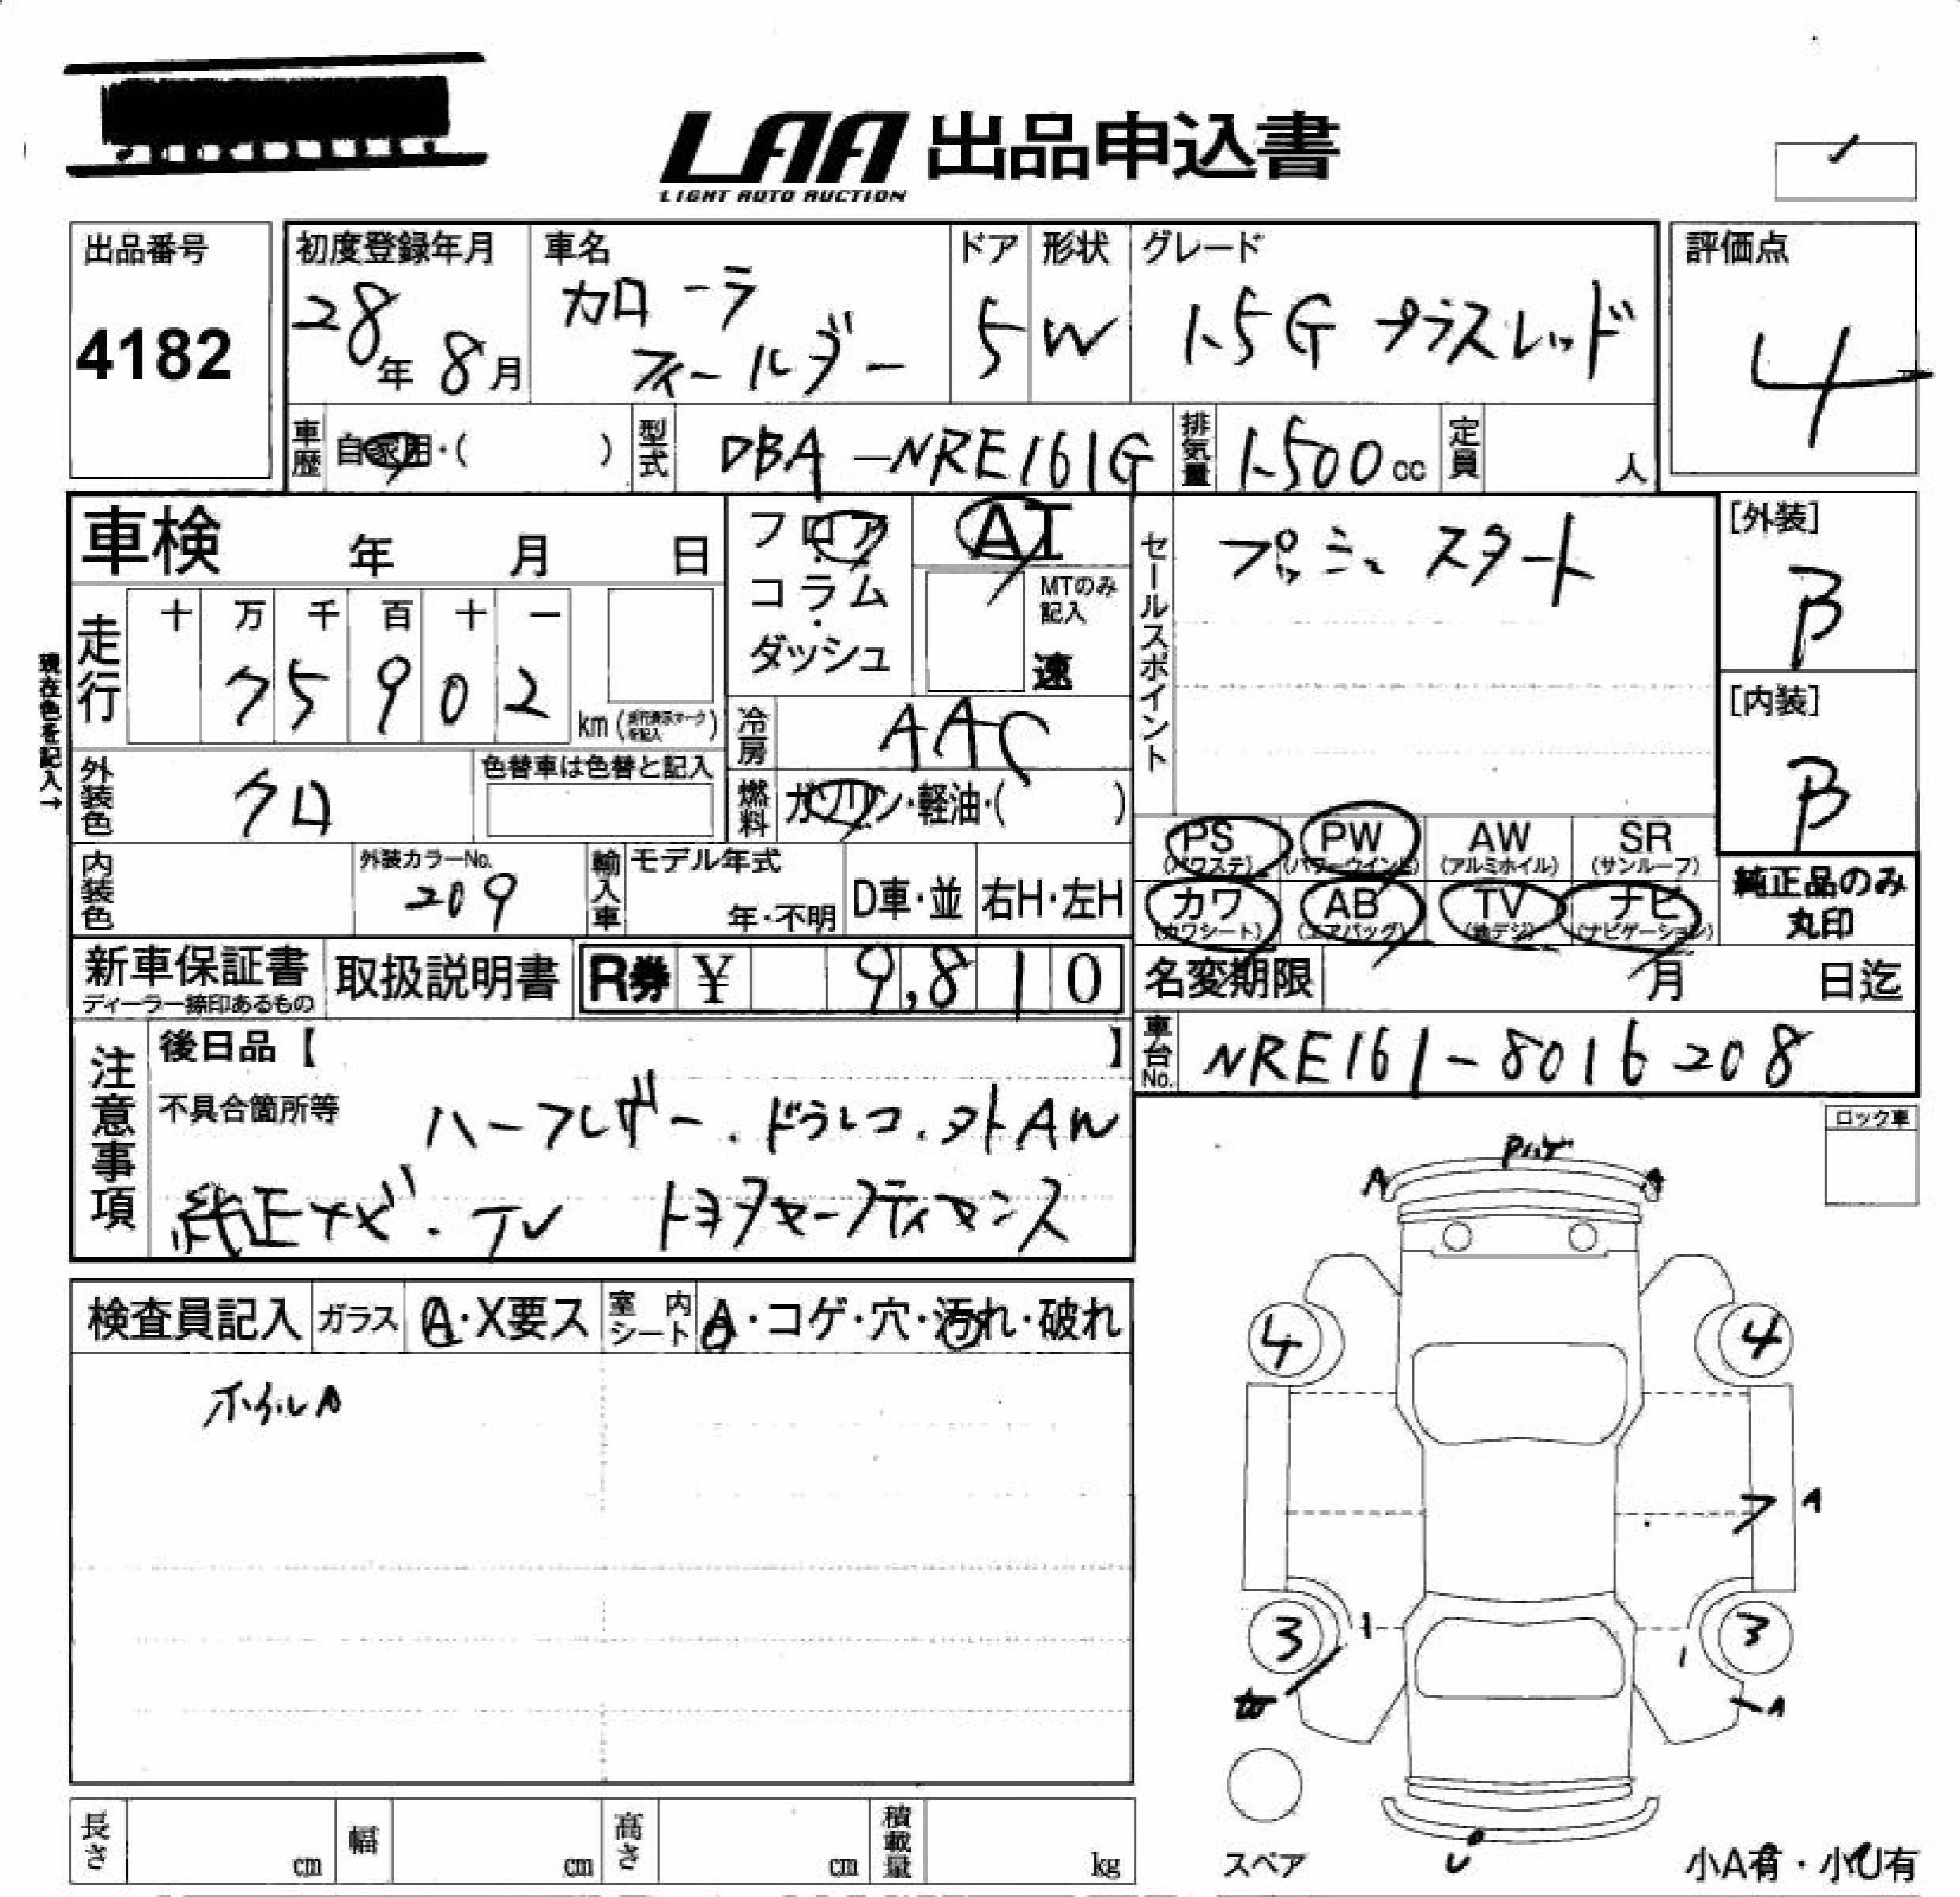 LAA 出品申込書
LIGHT AUTO AUCTION
出品番号
4182
初度登録年月
28年 8月
車名
カローラ
フィールダー
ドア
5
形状
W
グレード
1.5G プラスレッド
評価点
4
車歴 自家用・( )
型式 DBA-NRE161G
排気量 1500 cc
定員 人
車検 年 月 日
フロア
コラム
ダッシュ
AT
MTのみ
記入
速
セールスポイント
プッシュスタート
[外装]
B
[内装]
B
現在色を記入→
走行
十 万 千 百 十 一
7 5 9 0 2
km (走行表示マークを記入)
冷房 AAC
燃料 ガソリン・軽油・( )
外装色 クロ
色替車は色替と記入
PS
(パワステ)
PW
(パワーウインド)
AW
(アルミホイル)
SR
(サンルーフ)
カワ
(カワシート)
AB
(エアバッグ)
TV
(地デジ)
ナビ
(ナビゲーション)
純正品のみ
丸印
内装色
外装カラーNo.
209
輸入車
モデル年式
年・不明
D車・並
右H・左H
新車保証書
ディーラー締印あるもの
取扱説明書
R券 ¥ 9,810
名変期限 月 日迄
車台No. NRE161-8016208
注意事項
後日品【 】
不具合箇所等
ハーフレザー.ドラレコ.タトAW
純正ナビ.TV トヨタセーフティセンス
ロック車
A A
検査員記入
ガラス A・X要ス
室内シート A・コゲ・穴・汚れ・破れ
ホイルA
4 4
A
3 3
A
スペア
小A有・小U有
長さ cm
幅 cm
高さ cm
積載量 kg